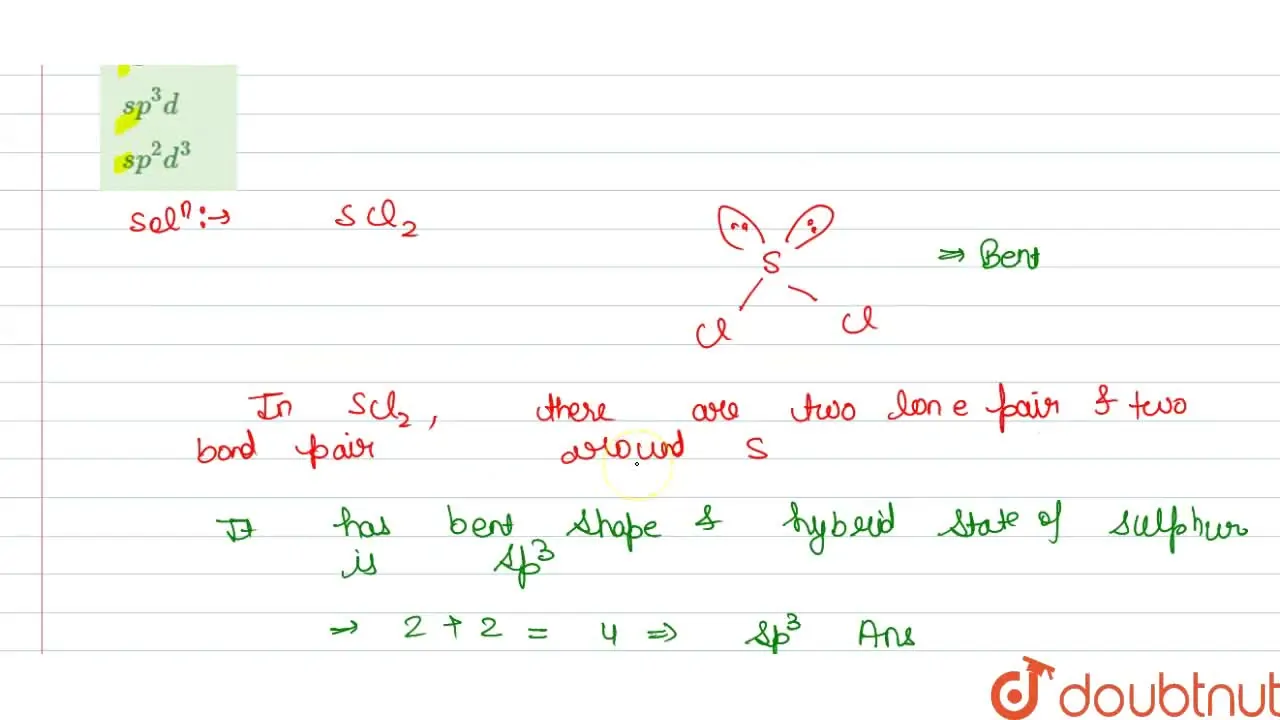 sp³d
sp²d³
Solⁿ:→ SCl₂
S
Cl Cl
⇒ Bent
In SCl₂, there are two lone pair & two
bond pair around S
It has bent shape & hybrid state of sulphur
is sp³
→ 2 + 2 = 4 ⇒ sp³ Ans
doubtnut